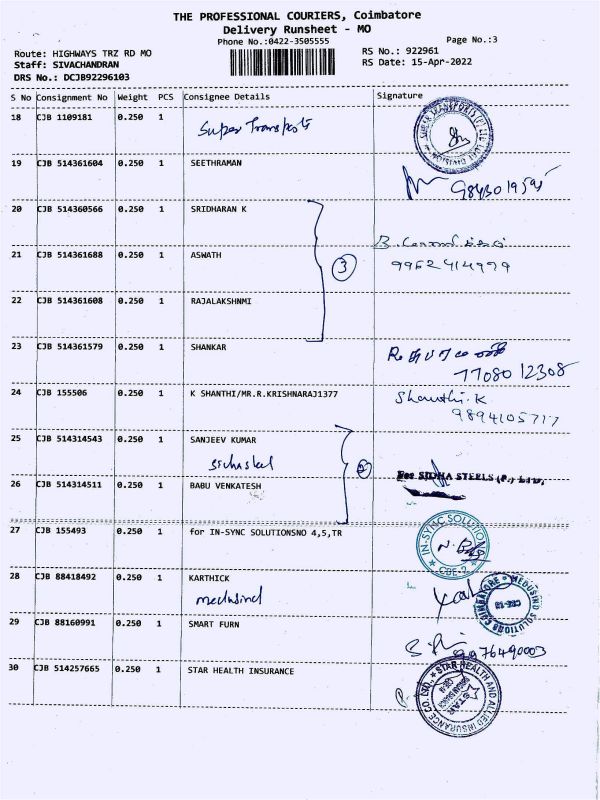 THE PROFESSIONAL COURIERS, Coimbatore
Delivery Runsheet - MO
Phone No.:0422-3505555
Page No.:3
Route: HIGHWAYS TRZ RD MO
RS No.: 922961
Staff: SIVACHANDRAN
RS Date: 15-Apr-2022
DRS No.: DCJB92296103
S No Consignment No Weight PCS Consignee Details Signature
18 CJB 1109181 0.250 1 Super Transports
19 CJB 514361604 0.250 1 SEETHRAMAN
20 CJB 514360566 0.250 1 SRIDHARAN K
21 CJB 514361688 0.250 1 ASWATH 3 9962414999
22 CJB 514361608 0.250 1 RAJALAKSHNMI
23 CJB 514361579 0.250 1 SHANKAR
77080 12308
24 CJB 155506 0.250 1 K SHANTHI/MR.R.KRISHNARAJ1377 Shanthi.K
9894105717
25 CJB 514314543 0.250 1 SANJEEV KUMAR
2
For SIDHA STEELS (P.) LTD,
26 CJB 514314511 0.250 1 BABU VENKATESH
27 CJB 155493 0.250 1 for IN-SYNC SOLUTIONSNO 4,5,TR
IN-SYNC SOLUTIONS
CBE-2
28 CJB 88418492 0.250 1 KARTHICK
medusind
MEDUSIND SOLUTIONS COIMBATORE
29 CJB 88160991 0.250 1 SMART FURN
30 CJB 514257665 0.250 1 STAR HEALTH INSURANCE
STAR HEALTH AND ALLIED INSURANCE CO. LTD.
STAR